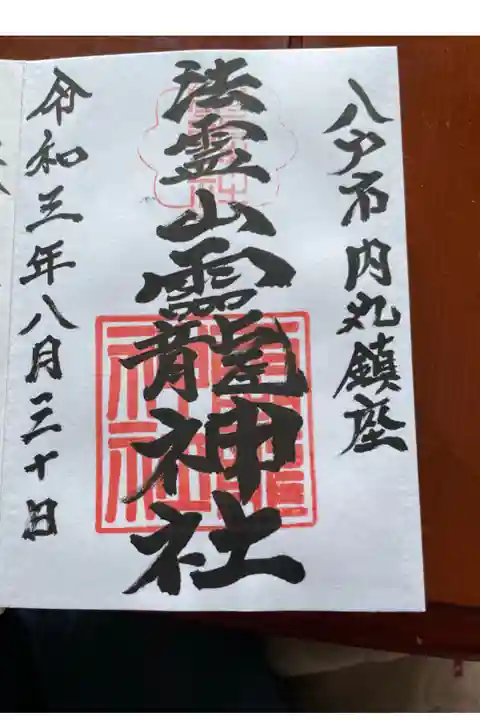 八戸市内丸鎮座
法霊山龗神社
令和三年八月三十日
龗神社